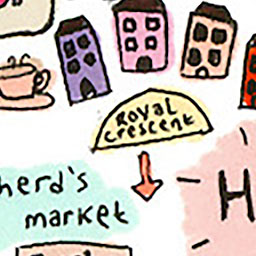 Royal
crescent
herd's
market
H